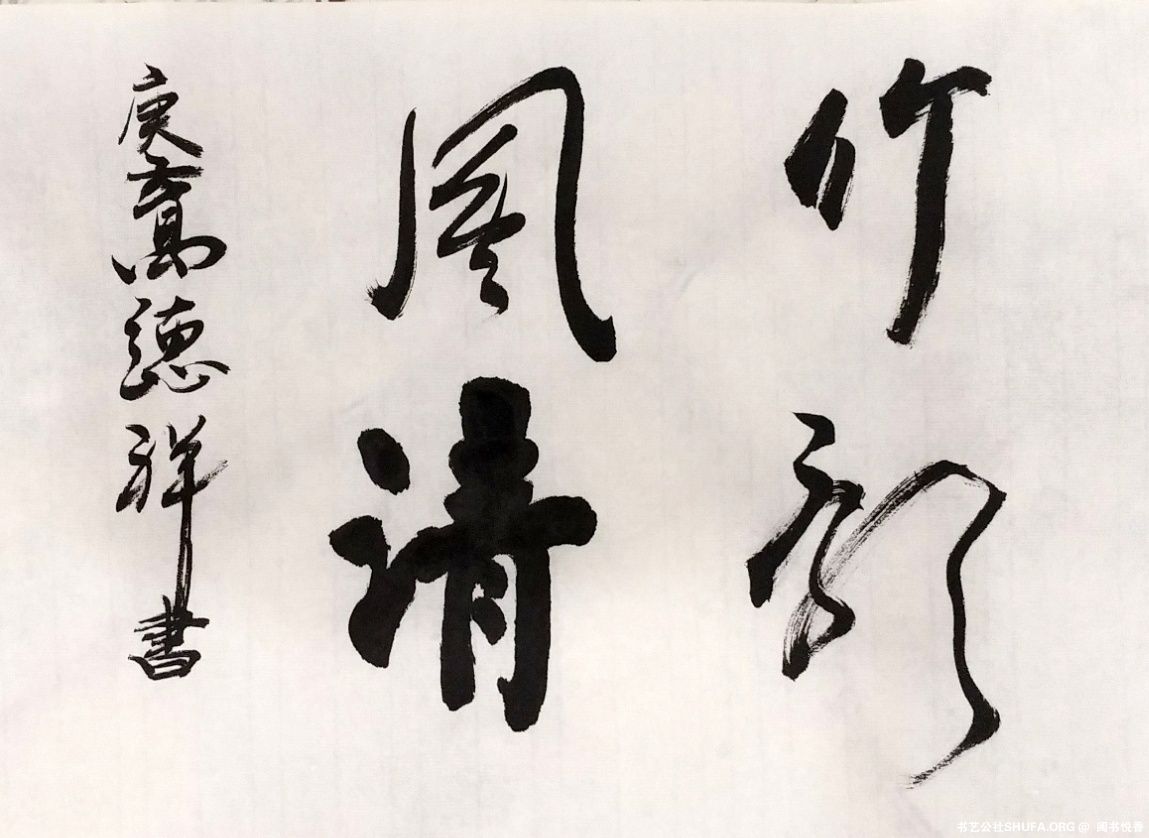 竹影
风清
庚子高德祥書
书艺公社SHUFA.ORG @ 阁书悦香